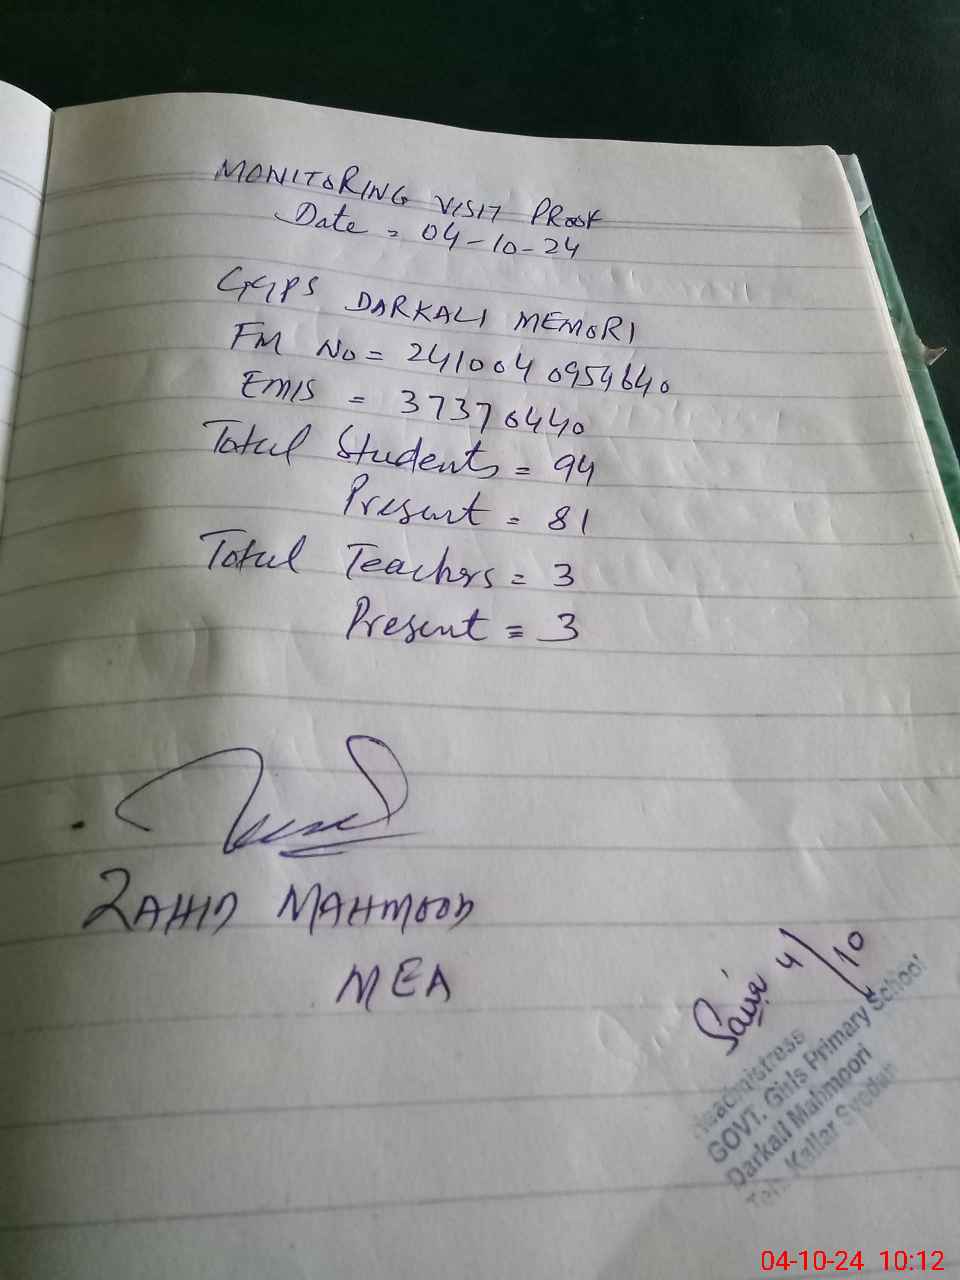 MONITORING VISIT PROOF
Date = 04-10-24
GGPS DARKALI MEMORI
FM No = 2410040954640
EMIS = 37370440
Total Students = 94
Present = 81
Total Teachers = 3
Present = 3
ZAHID MAHMOOD
MEA
4/10
Headmistress
GOVT. Girls Primary School
Darkali Mahmoori
Teh. Kallar Syedan
04-10-24 10:12